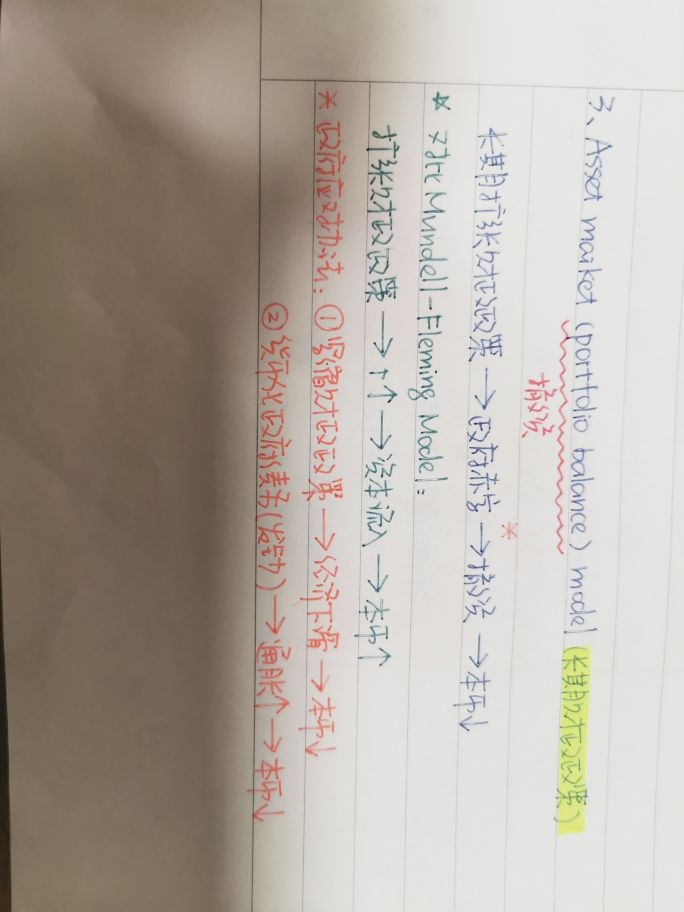 3、Asset market (portfolio balance) model (长期财政政策)
撸贷
长期扩张财政政策 → 政府赤字 → 撸贷 → 本币↓
*
☆ 对比 Mundell-Fleming Model:
扩张财政政策 → r↑ → 资本流入 → 本币↑
* 政府应对办法: ① 紧缩财政政策 → 经济下滑 → 本币↓
② 货币化政府债务(发钱) → 通胀↑ → 本币↓